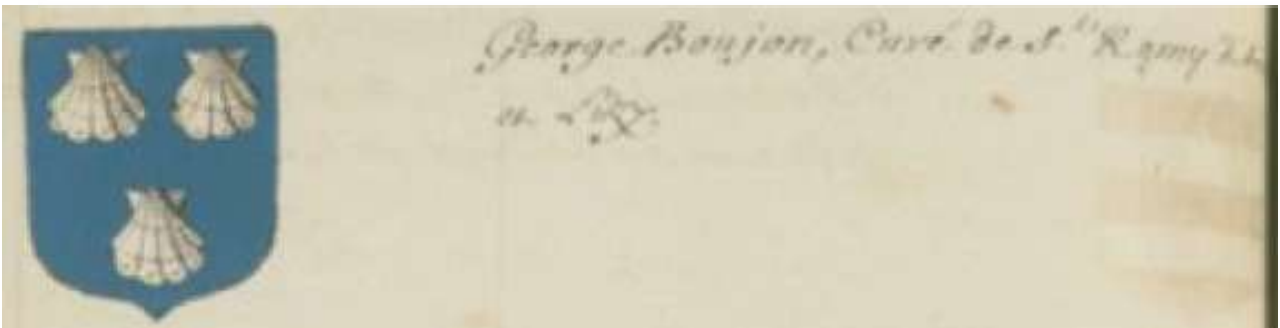 George Boujon, Curé de S.^t Remy